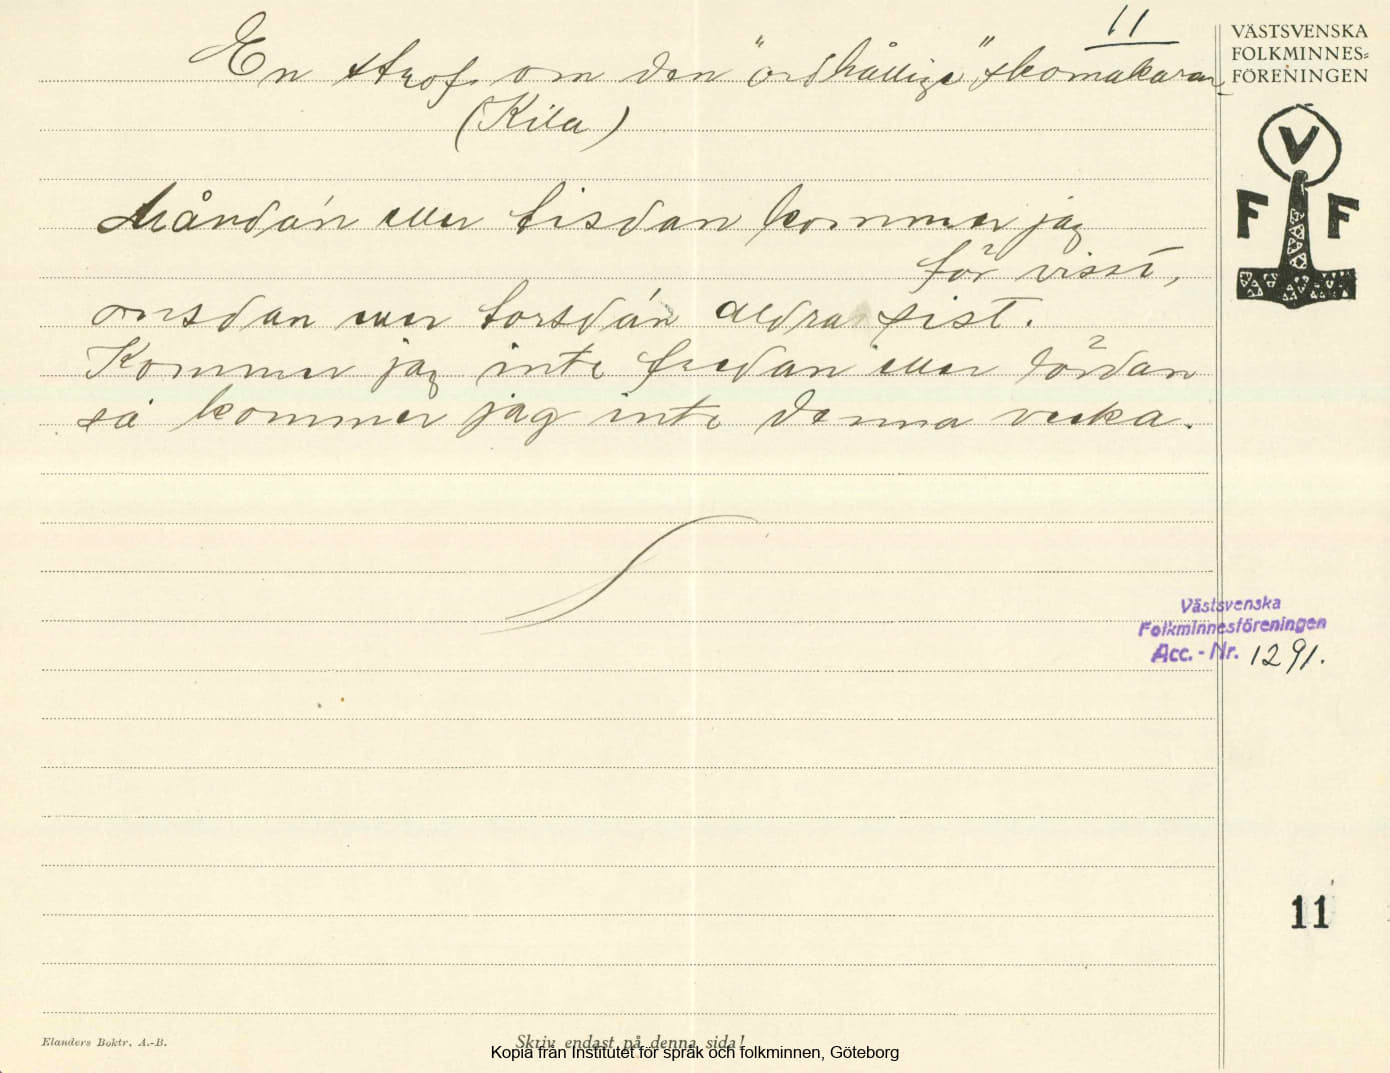 11
En strof om den "ordhållige" skomakaren
(Kila)
Måndan eller tisdan kommer jag
för visst,
onsdan eller torsdan aldra sist.
Kommer jag inte fredan eller lördan
så kommer jag inte denna vecka.
VÄSTSVENSKA
FOLKMINNES=
FÖRENINGEN
V
F F
Västsvenska
Folkminnesföreningen
Acc. - Nr. 1291.
11
Elanders Boktr. A.-B.
Skriv endast på denna sida!
Kopia från Institutet för språk och folkminnen, Göteborg